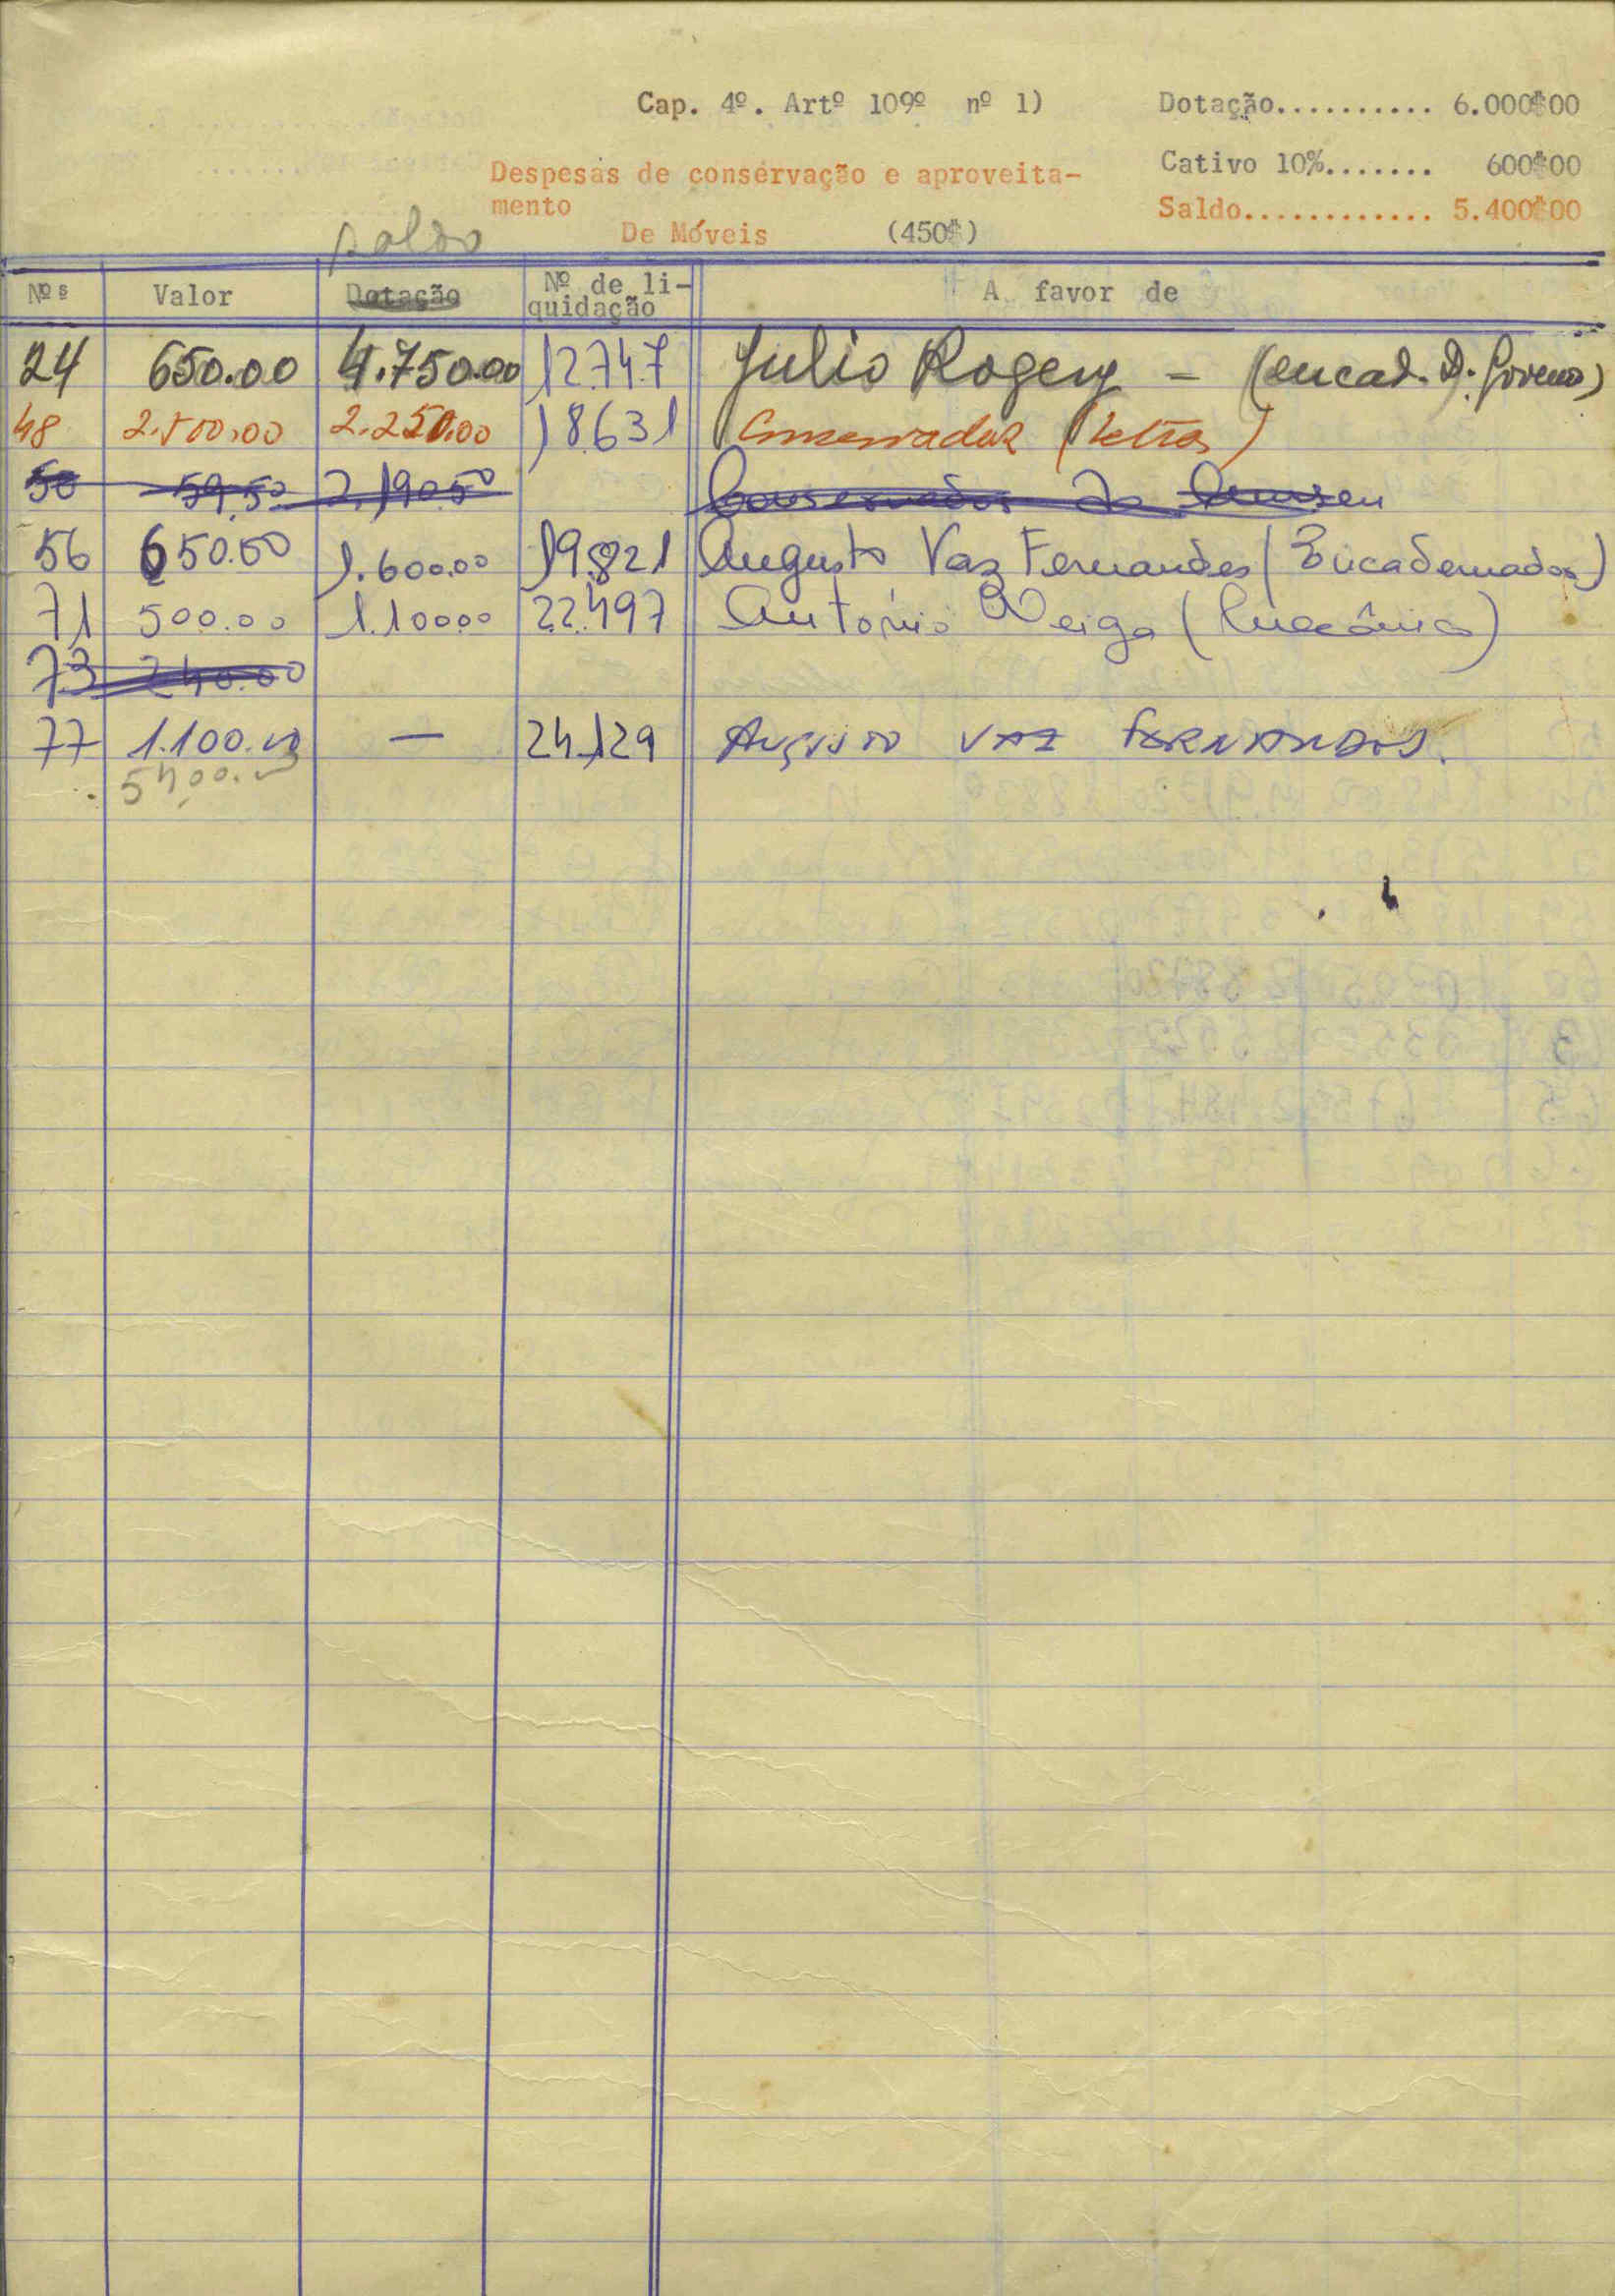 Cap. 4º. Artº 109º nº 1)
Dotação.......... 6.000$00
Cativo 10%....... 600$00
Saldo............ 5.400$00
Despesas de conservação e aproveita-
mento
De Móveis (450$)
saldo
Nºs Valor Dotação Nº de li-
quidação A favor de
24 650.00 4.750.00 12.747 Julio Rogery - (encad. D. Governo)
48 2.500,00 2.250.00 18.631 Conservador (Letras)
50 59,50 2.190.50 Conservador do Museu
56 650.00 1.600.00 19.821 Augusto Vaz Fernandes (Encadernador)
71 500.00 1.100.00 22.497 António Veiga (Mecânico)
73 240.00
77 1.100.00 — 24.129 AUGUSTO VAZ FERNANDES.
5400.00